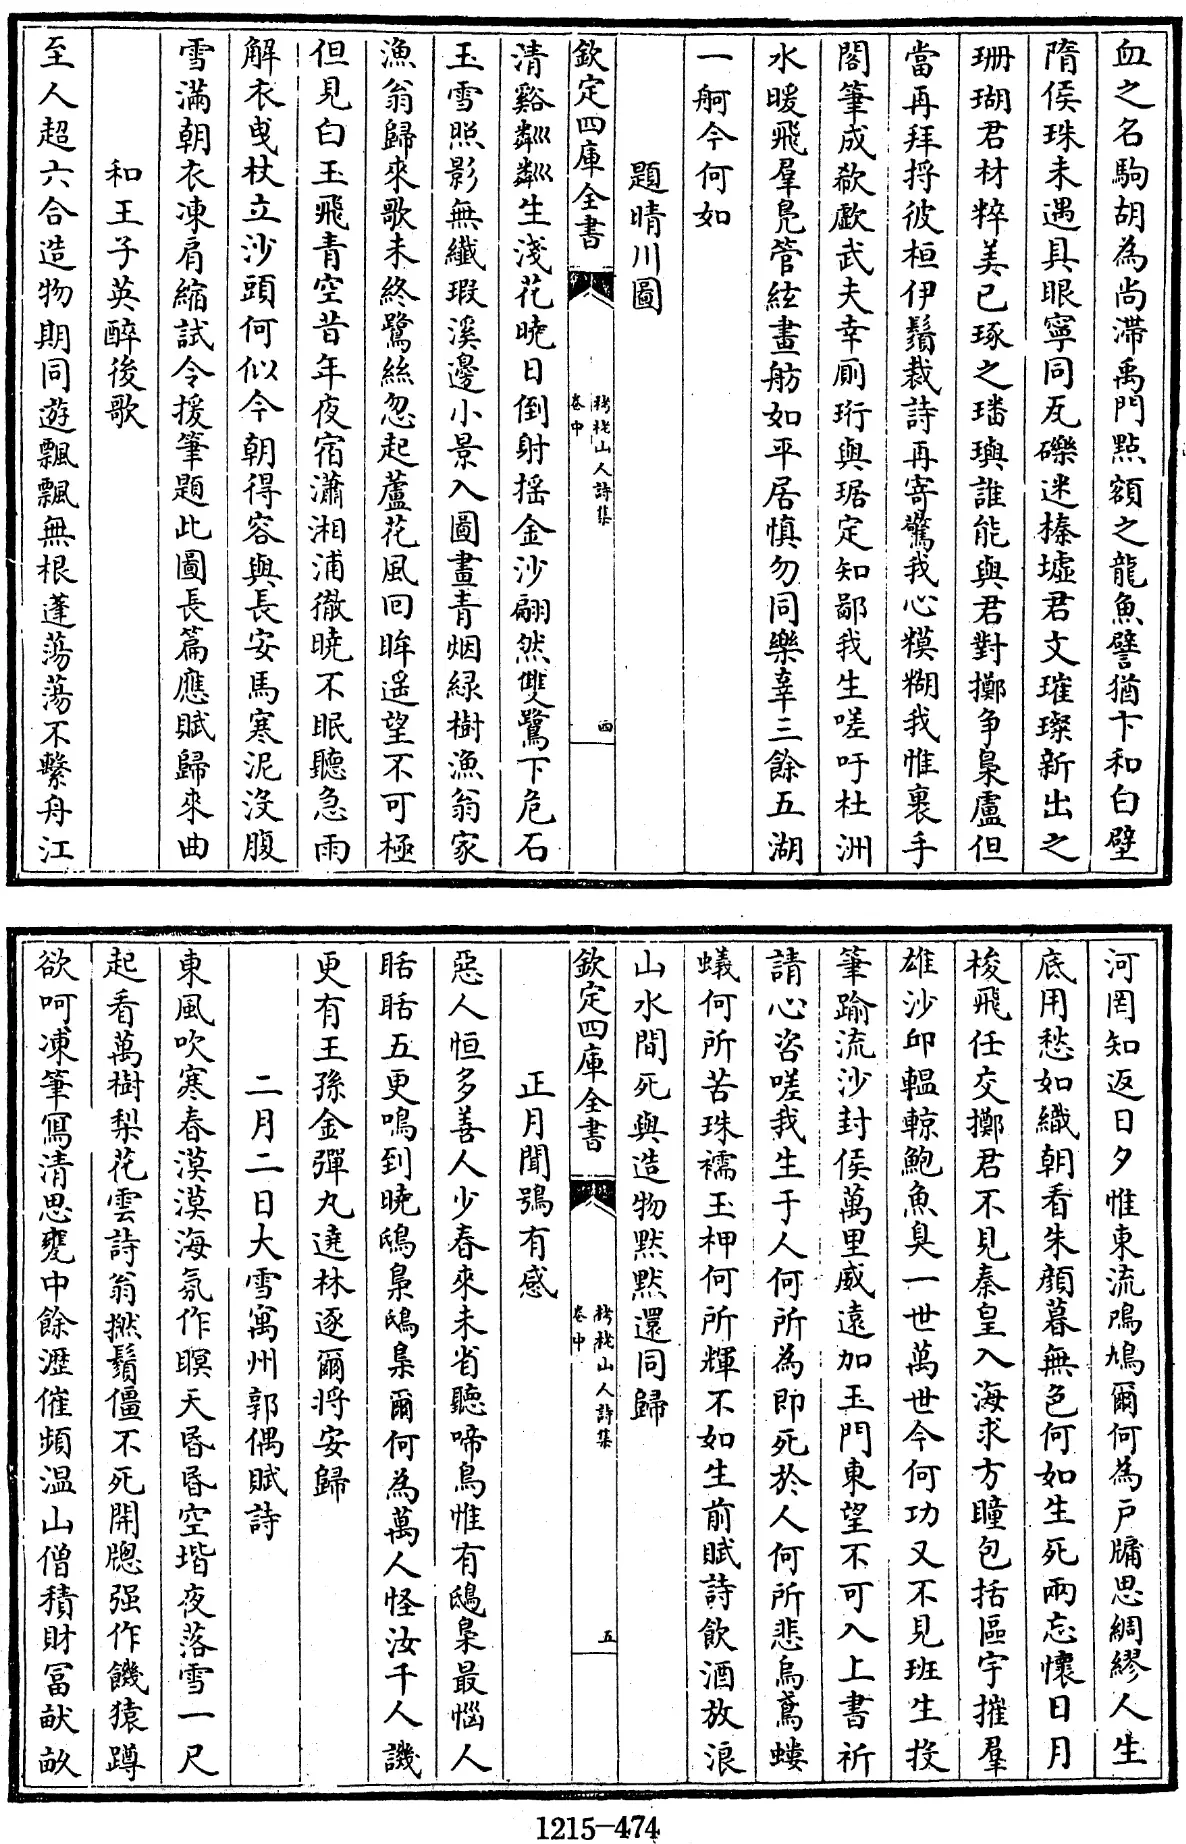 血之名駒胡為尚滯禹門點額之龍魚譬猶卞和白壁
隋侯珠未遇具眼寧同瓦礫迷榛墟君文璀璨新出之
珊瑚君材粹美已琢之璠璵誰能與君對擲争梟盧但
當再拜捋彼桓伊鬚裁詩再寄驚我心糢糊我惟裹手
閣筆成欷歔武夫幸厠珩與琚定知鄙我生嗟吁杜洲
水暖飛羣鳧管絃畫舫如平居慎勿同樂辜三餘五湖
一舸今何如
題晴川圖
欽定四庫全書
栲栳山人詩集
卷中
四
清谿粼粼生淺花曉日倒射揺金沙翩然雙鷺下危石
玉雪照影無纖瑕溪邊小景入圖畫青烟緑樹漁翁家
漁翁歸來歌未終鷺絲忽起蘆花風回眸遥望不可極
但見白玉飛青空昔年夜宿瀟湘浦徹曉不眠聽急雨
解衣曳杖立沙頭何似今朝得容與長安馬寒泥没腹
雪滿朝衣凍肩縮試令援筆題此圖長篇應賦歸來曲
和王子英醉後歌
至人超六合造物期同遊飄飄無根蓬蕩蕩不繫舟江
河罔知返日夕惟東流鳲鳩爾何為戸牖思綢繆人生
底用愁如織朝看朱顔暮無色何如生死兩忘懷日月
梭飛任交擲君不見秦皇入海求方瞳包括區宇摧羣
雄沙邱轀輬鮑魚臭一世萬世今何功又不見班生投
筆踰流沙封侯萬里威遠加玉門東望不可入上書祈
請心咨嗟我生于人何所為即死於人何所悲烏鳶螻
蟻何所苦珠襦玉柙何所輝不如生前賦詩飲酒放浪
山水間死與造物默默還同歸
欽定四庫全書
栲栳山人詩集
卷中
五
正月聞鴞有感
惡人恒多善人少春來未省聽啼鳥惟有鴟梟最惱人
聒聒五更鳴到曉鴟梟鴟梟爾何為萬人怪汝千人譏
更有王孫金彈丸遶林逐爾将安歸
二月二日大雪寓州郭偶賦詩
東風吹寒春漠漠海氛作暝天昏昏空堦夜落雪一尺
起看萬樹梨花雲詩翁撚鬚僵不死開牎强作饑猿蹲
欲呵凍筆寫清思甕中餘瀝催頻温山僧積財富猷畝
1215-474